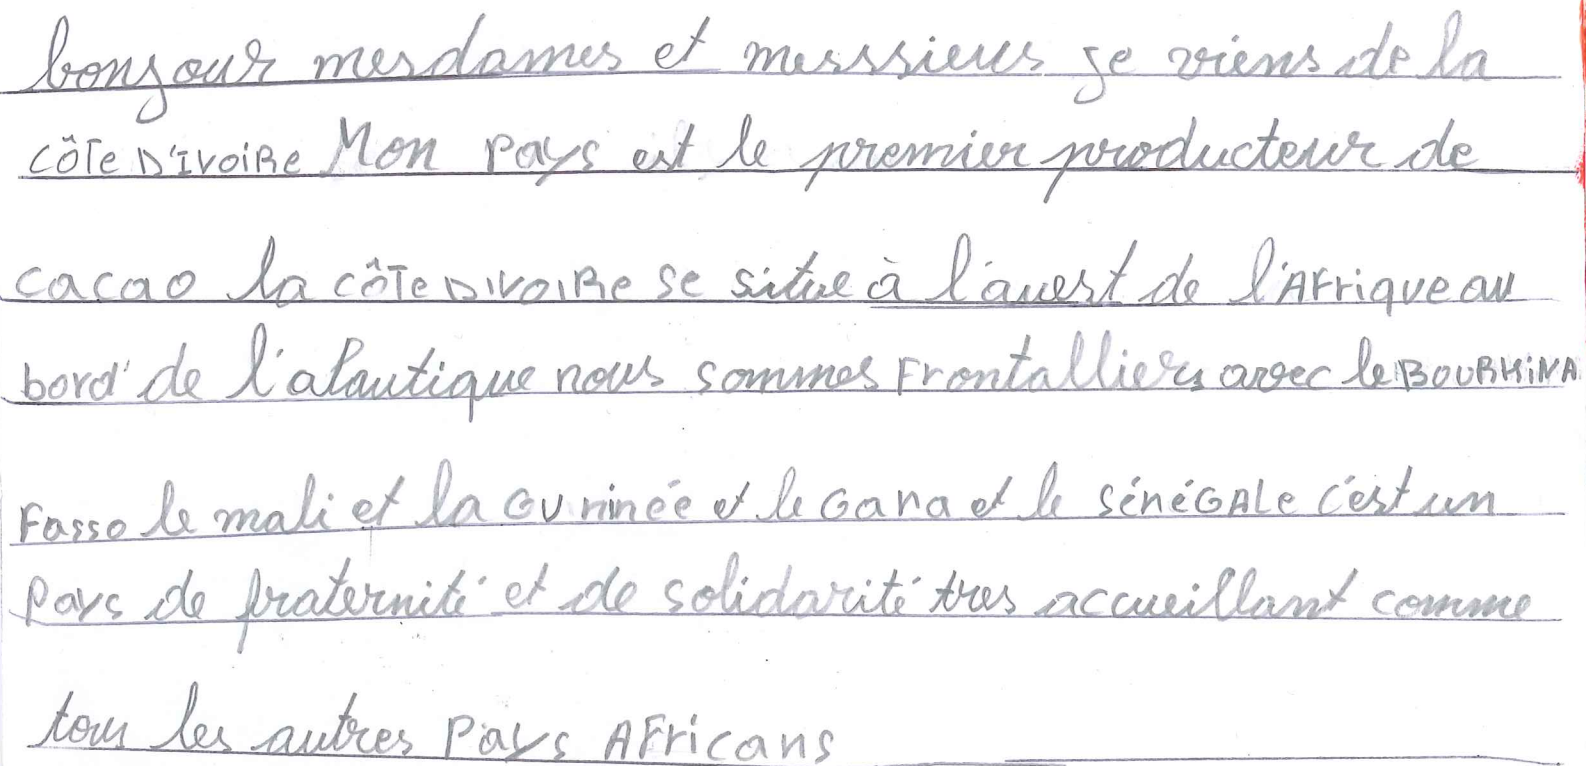 bonjour mesdames et messsieus je viens de la
CÔTE D'IVOIRE Mon pays est le premier producteur de
cacao la CÔTE DIVOIRE se situe à l'auest de l'AFrique au
bord de l'alantique nous sommes Frontalliers avec le BOURKINA
Fasso le mali et la GUninée et le Gana et le SÉNÉGALE c'est un
Pays de fraternité et de solidarité tres accueillant comme
tous les autres Pays AFricans